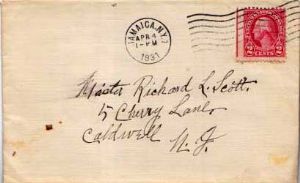 JAMAICA, N.Y.
APR 4
1-PM
1931
2 CENTS 2
Master Richard L. Scott.
5 Cherry Lane,
Caldwell N. J.